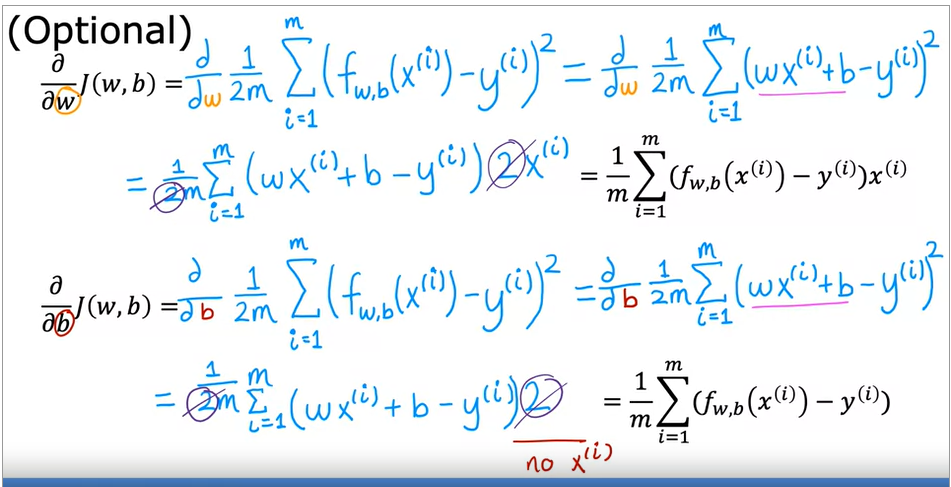 (Optional)
∂/∂w J(w, b) = ∂/∂w 1/2m ∑_{i=1}^{m} (f_{w,b}(x^{(i)}) − y^{(i)})^2 = ∂/∂w 1/2m ∑_{i=1}^{m} (wx^{(i)} + b − y^{(i)})^2
= 1/2m ∑_{i=1}^{m} (wx^{(i)} + b − y^{(i)}) 2x^{(i)} = 1/m ∑_{i=1}^{m} (f_{w,b}(x^{(i)}) − y^{(i)})x^{(i)}
∂/∂b J(w, b) = ∂/∂b 1/2m ∑_{i=1}^{m} (f_{w,b}(x^{(i)}) − y^{(i)})^2 = ∂/∂b 1/2m ∑_{i=1}^{m} (wx^{(i)} + b − y^{(i)})^2
= 1/2m ∑_{i=1}^{m} (wx^{(i)} + b − y^{(i)}) 2 = 1/m ∑_{i=1}^{m} (f_{w,b}(x^{(i)}) − y^{(i)})
no x^{(i)}